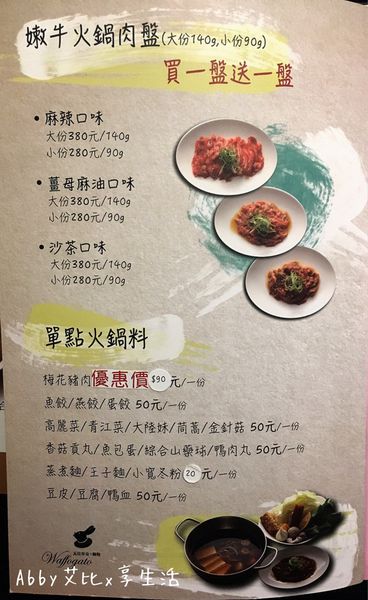 嫩牛火鍋肉盤(大份140g,小份90g)
買一盤送一盤
• 麻辣口味
大份380元/140g
小份280元/90g
• 薑母麻油口味
大份380元/140g
小份280元/90g
• 沙茶口味
大份380元/140g
小份280元/90g
單點火鍋料
梅花豬肉優惠價$90元/一份
魚餃/燕餃/蛋餃 50元/一份
高麗菜/青江菜/大陸妹/茼蒿/金針菇 50元/一份
香菇貢丸/魚包蛋/綜合山藥球/鴨肉丸 50元/一份
蒸煮麵/王子麵/小寬冬粉 20元/一份
豆皮/豆腐/鴨血 50元/一份
Waffogato
Abby艾比x享生活